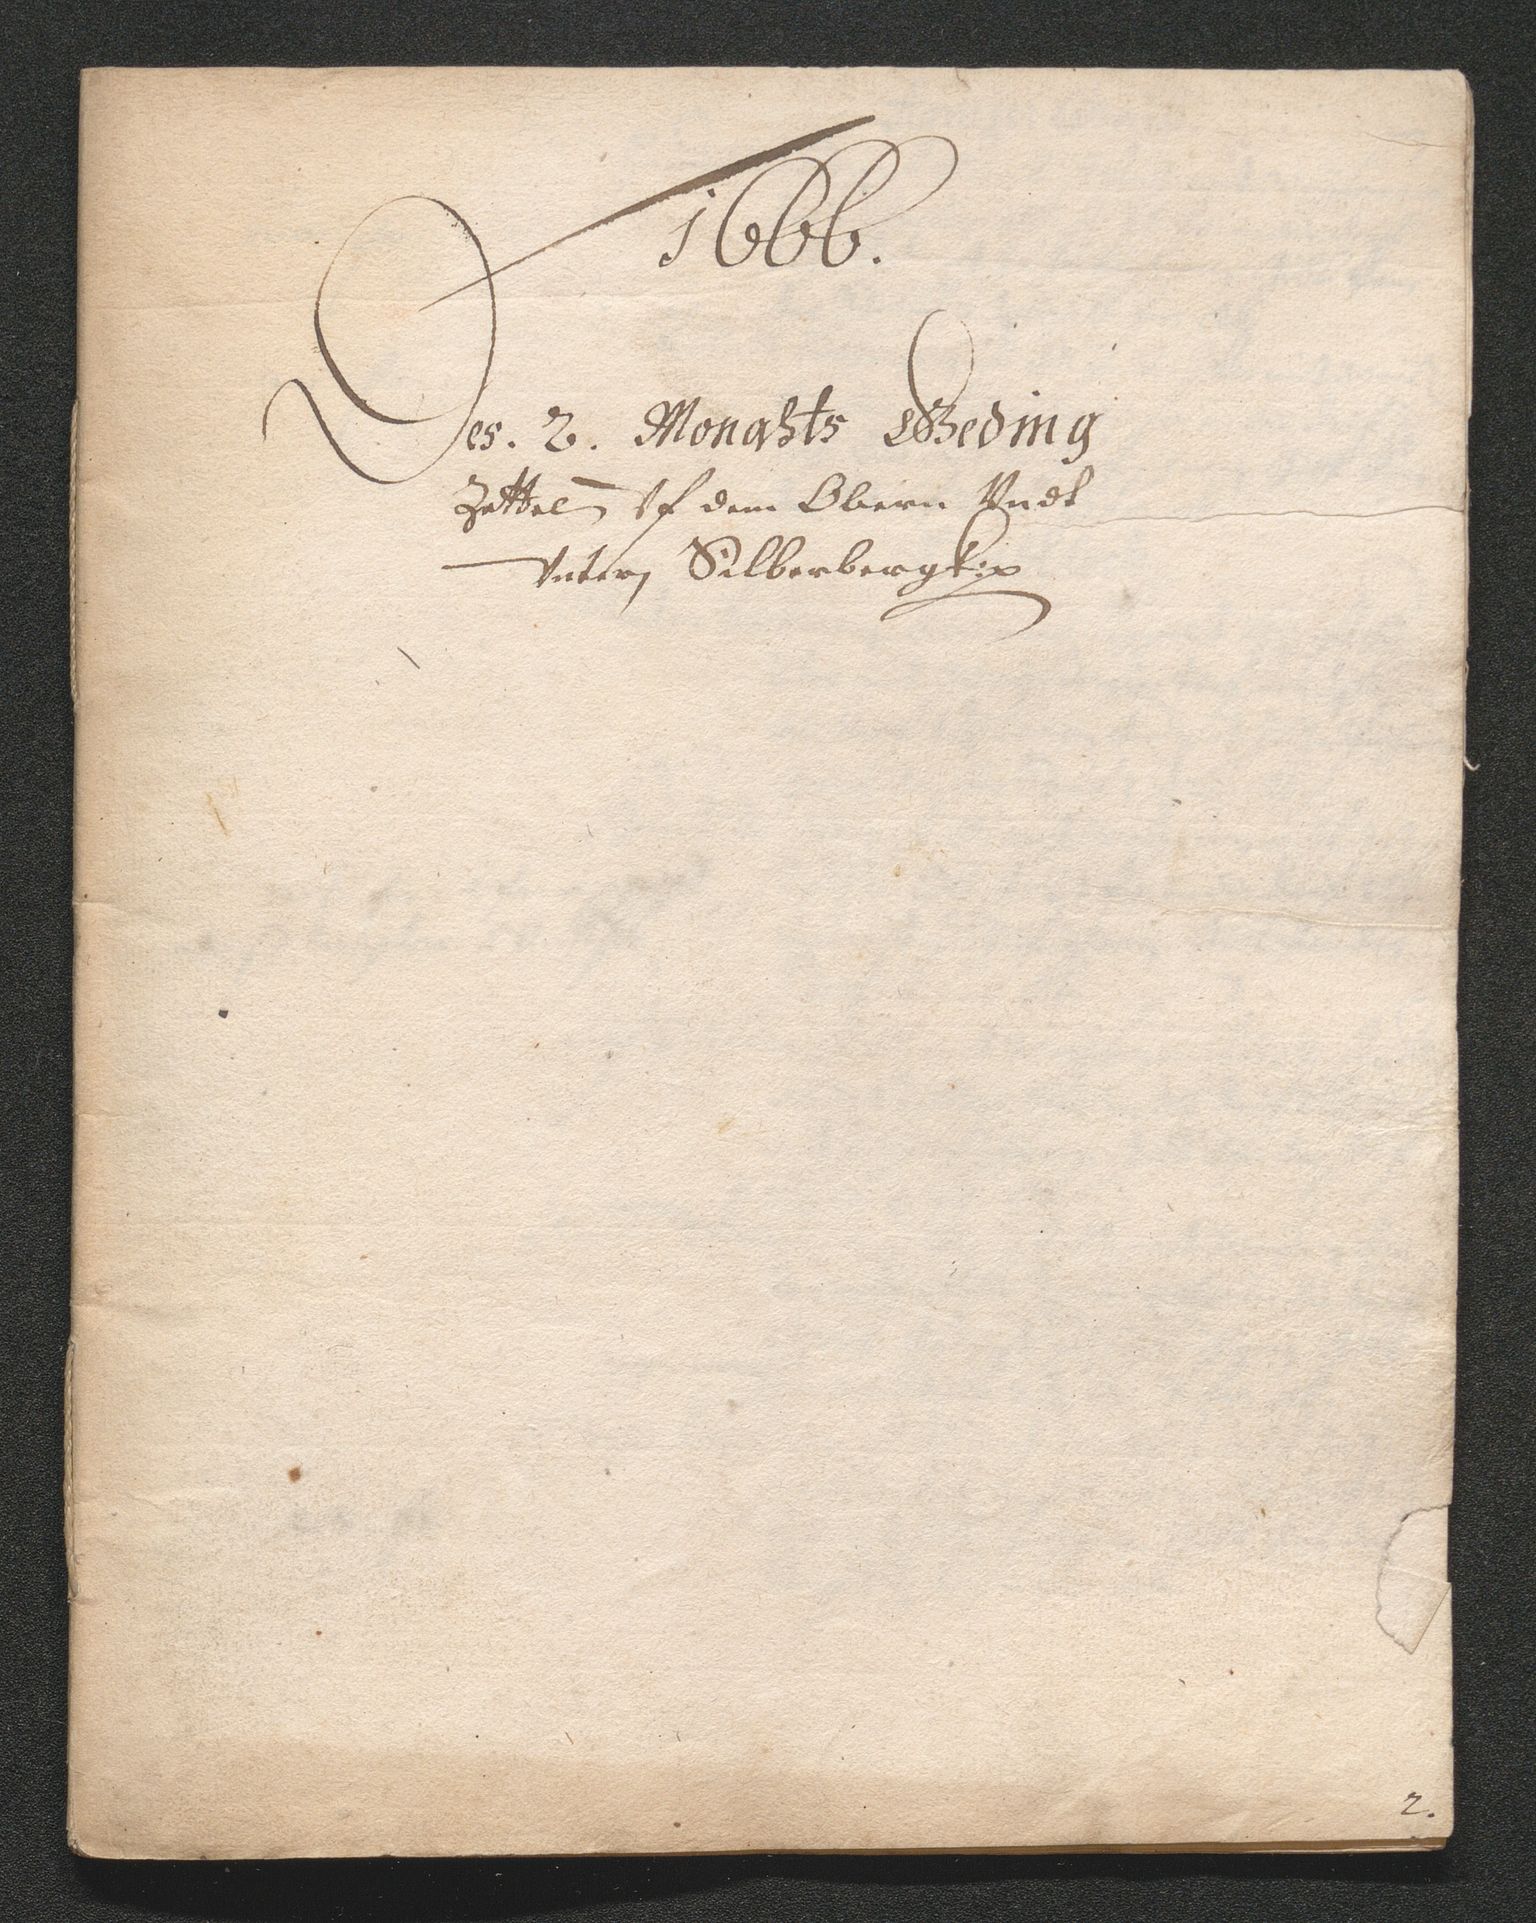 1666.
Des. 2. Monahts Geding
Zettel Vf dem Obern Vndt
Vntern Silberbergk
2.